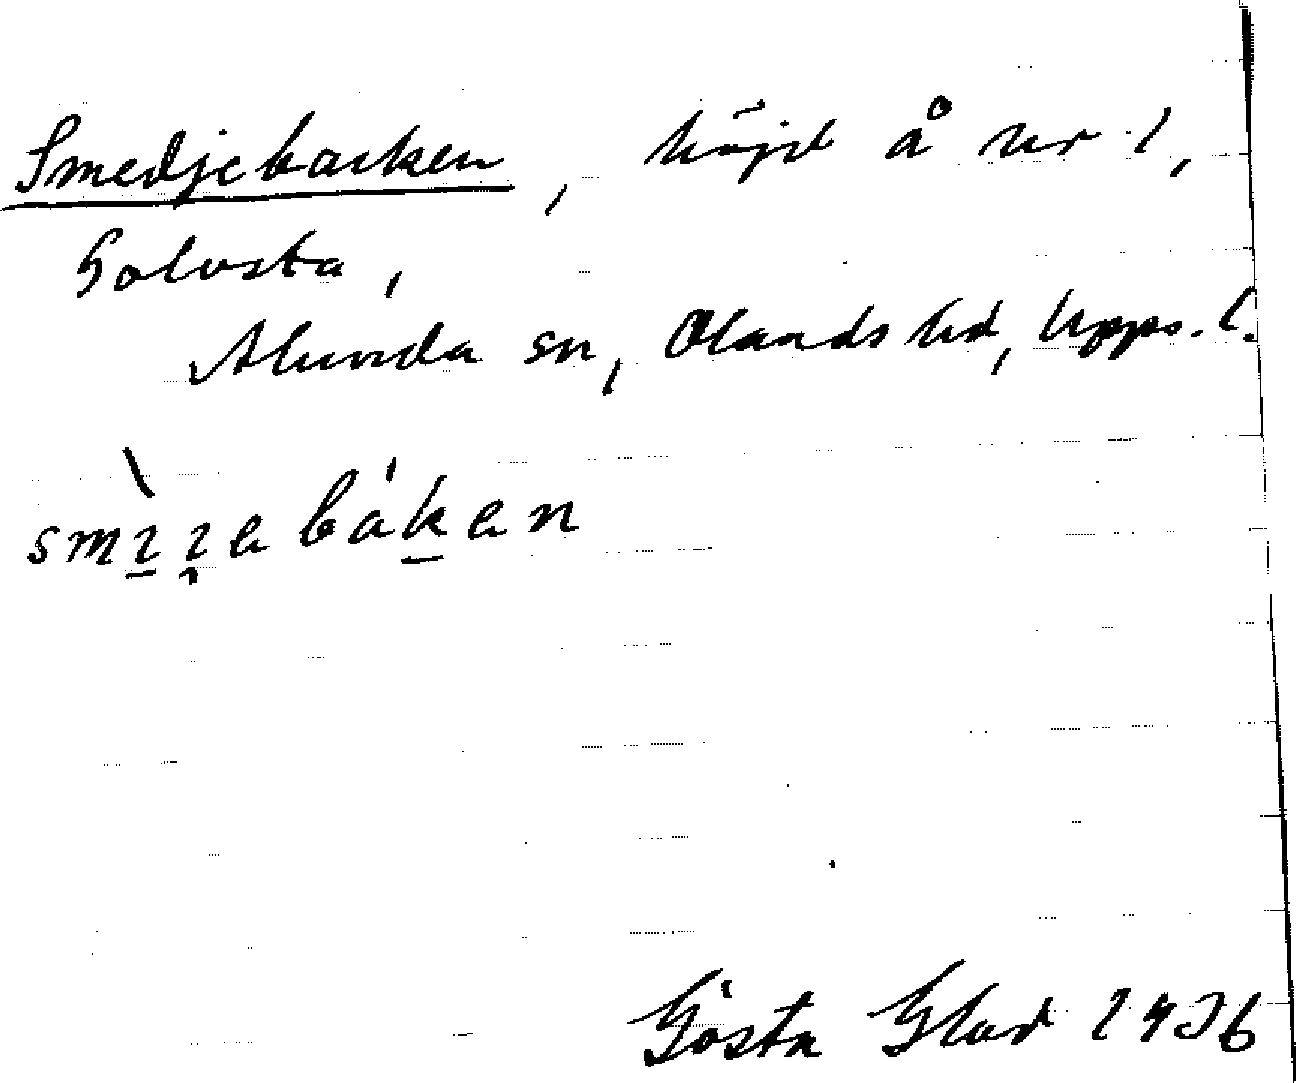 Smedjebacken, höjd å nr 1,
Golvsta,
Alunda sn, Olands hd, Upps. l.
smìɿebáken
Gösta Glad 1936